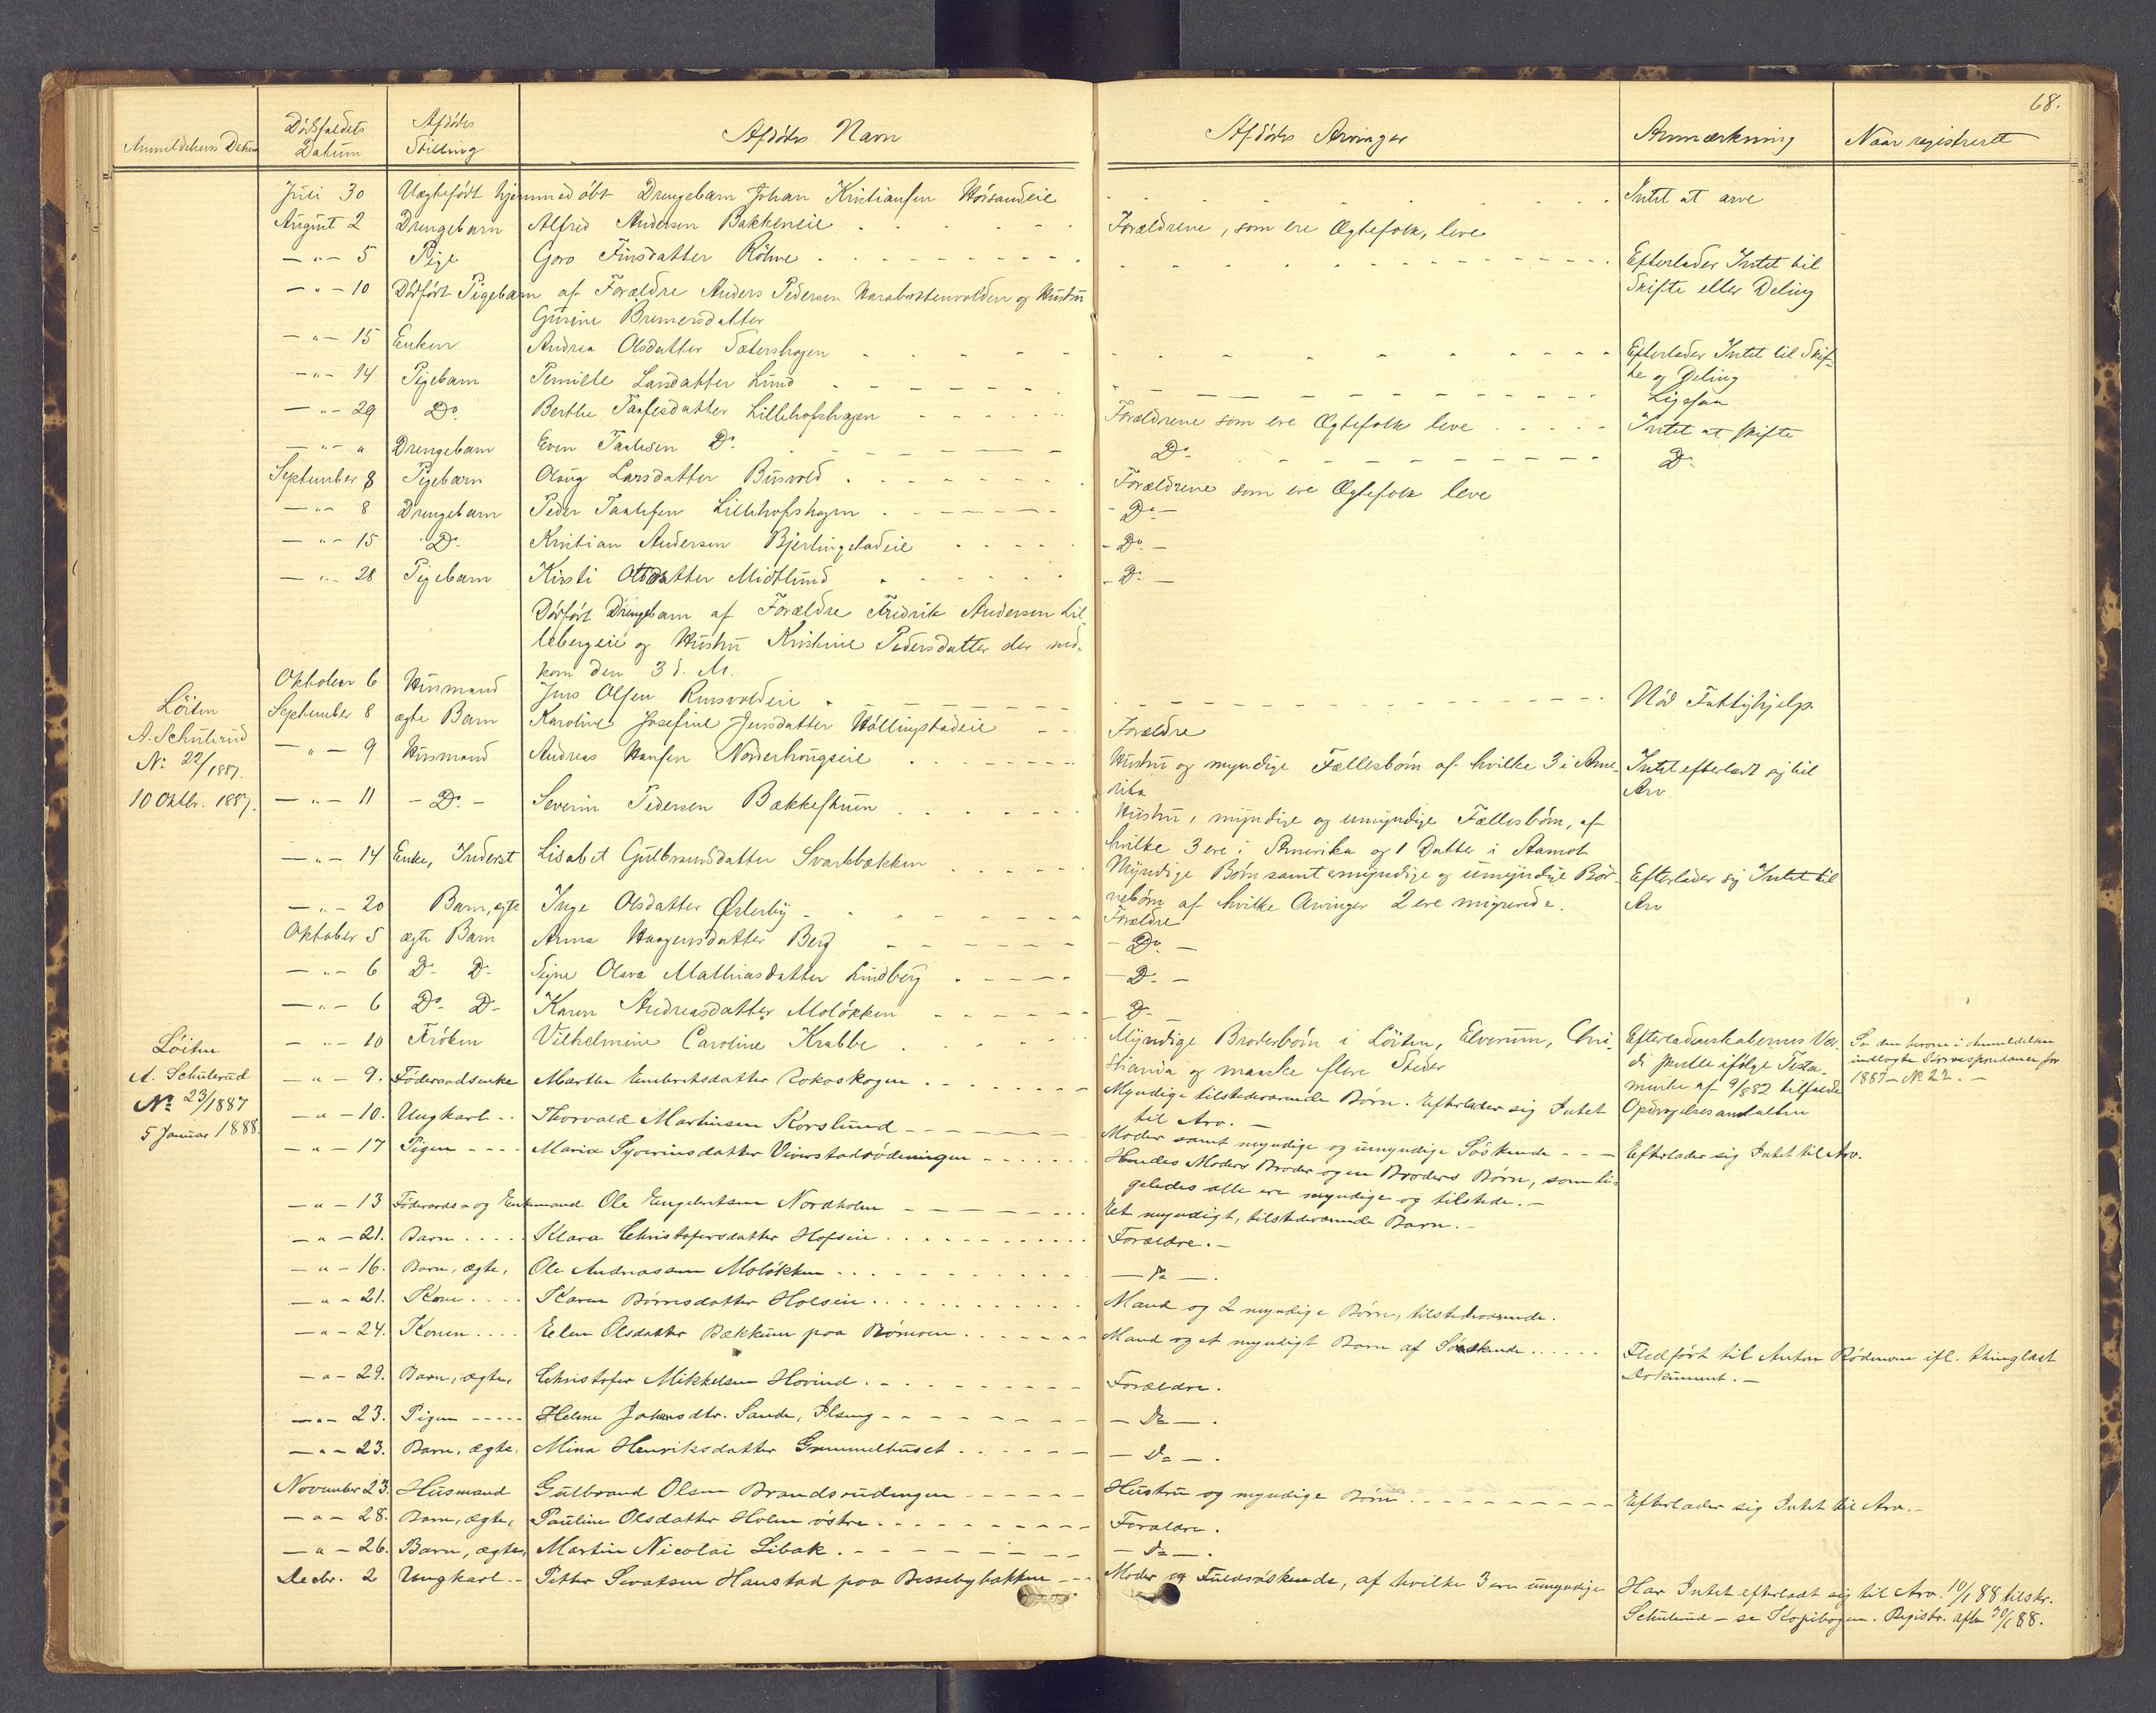 68.
Anmeldelsens Datum | Dödsfaldets Datum | Afdödes Stilling | Afdödes Navn | Afdödes Arvinger | Anmærkning | Naar registreret
Juli 30 | Uægtefödt hjemmedöbt Drengebarn Johan Kristiansen | Intet at arve
August 2 | Drengebarn | Alfred Andersen Bakkeneie | Forældrene, som ere Ægtefolk, leve
— " — 5 | Pige | Goro Finsdatter | Efterlader Intet til
Skifte eller Deling
— " — 10 | Dödfödt Pigebarn af Forældre Anders Pedersen og Hustru
Gurine
— " — 15 | Enken | Andrea Olsdatter Sætershagen | Efterlader Intet til Skif-
te og Deling
— " — 14 | Pigebarn | Pernille Larsdatter Lund | Ligesaa
— " — 29 | Do | Berthe Paulsdatter Lillehofshagen | Forældrene som ere Ægtefolk leve | Intet at skifte
— " — " | Drengebarn | Even Paulsen Do | Do | Do
September 8 | Pigebarn | Olaug Larsdatter | Forældrene som ere Ægtefolk leve
— " — 8 | Drengebarn | Peder Paulsen Lillehofshagen | - Do -
— " — 15 | Do | Kristian Andersen | - Do -
— " — 28 | Pigebarn | Kirsti Olsdatter Midtlund | - Do -
Dödfödt Drengebarn af Forældre Fredrik Andersen Lil-
lebergeie og Hustru Kristine Pedersdatter der ned-
kom den 3 d. M.
Oktober 6 | Husmand | Jens Olsen | Nöd Fattighjelp.
Löiten
A. Schulerud
No 22/1887.
10 Oktbr. 1887.
September 8 | ægte Barn | Karoline Josefine Jensdatter | Forældre
— " — 9 | Husmand | Andreas Hansen Norderhougseie | Hustru og myndige Fællesbörn af hvilke 3 i Ame-
rika | Intet efterladt sig til
Arv
— " — 11 | - Do - | Severin Pedersen | Hustru, myndige og umyndige Fællesbörn, af
hvilke 3 ere i Amerika og 1 Datter i Aamot
— " — 14 | Enke, Inderst | Lisabet Gulbrandsdatter Svartbækken | Myndige Börn samt myndige og umyndige Bör-
nebörn af hvilke Arvinger 2 ere | Efterlader sig Intet til
Arv
— " — 20 | Barn, ægte | Inge Olsdatter Østerby | Forældre
Oktober 5 | ægte Barn | Anna Haagensdatter Berg | - Do -
— " — 6 | Do Do | Signe Olava Mathiasdatter Lindberg | - Do -
— " — 6 | Do Do | Karen Andreasdatter Molökken | - Do -
Löiten
A. Schulerud
No 23/1887
5 Januar 1888.
— " — 10 | Fröken | Vilhelmine Caroline Krabbe | Myndige Broderbörn i Löiten, Elverum, Chri-
stiania og maaske flere Steder | Efterladenskabernes Vær-
di skulle ifölge Testa-
mente af 9/1882 tilfalde
Opdragelsesanstalten | Se den herom i Anmeldelsen
indlagte Correspondance for
1887 — No 22. —
— " — 9. | Föderaadsenke | Marthe Embretsdatter Rokoskogen | Myndige tilstedeværende Börn. Efterlader sig Intet
til Arv. —
— " — 10. | Ungkarl | Thorvald Martinsen Korslund | Moder samt myndige og umyndige Söskende | Efterlader sig Intet til Arv.
— " — 17 | Pigen | Maria Syverinsdatter | Hendes Moders Broder og en Broders Börn, som li-
geledes alle ere myndige og tilstede. —
— " — 13 | Föderaads- og Enkemand Ole Engebretsen Nordholm | Et myndigt, tilstedeværende Barn. —
— " — 21. | Barn | Klara Christofersdatter Hofseie | Forældre. —
— " — 16. | Barn, ægte, | Ole Andreassen Molökken | — Do —.
— " — 21. | Kone | Karen Börresdatter Holseie | Mand og 2 myndige Börn, tilstedeværende.
— " — 24. | Konen | Eelen Olsdatter Bækken paa | Mand og et myndigt Barn af Söskende | Fledfört til Anton Rödmoen ifl. thinglæst
Dokument. —
— " — 29. | Barn, ægte, | Christofer Mikkelsen Hovind | Forældre.
— " — 23. | Pigen | Helene Johansdtr. Sande, Ilseng | — Do —.
— " — 23. | Barn, ægte, | Mina Henriksdatter Grimmelhuset | — Do —.
November 23. | Husmand | Gulbrand Olsen Brandsrudengen | Hustru og myndige Börn | Efterlader sig Intet til Arv. —
— " — 28. | Barn, ægte, | Pauline Olsdatter Holen östre | Forældre.
— " — 26. | Barn, ægte, | Martin Nicolai Libak | — Do —.
Decbr. 2 | Ungkarl | Petter Haustad paa Bessebybakken | Moder og Fuldsöskende, af hvilke 3 ere umyndige | Har Intet efterladt sig til Arv. 10/1 88 tilskr.
Schulerud — se Kopibogen. Registr. aflev 30/1 88.